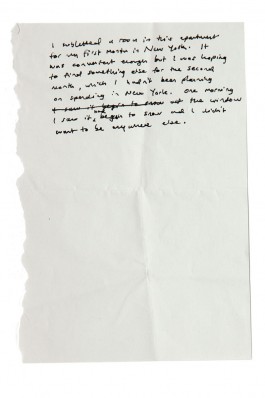 I subletted a room in this apartment
for my first month in New York. It
was convenient enough but I was hoping
to find something else for the second
month, which I hadn't been planning
on spending in New York. One morning
I saw it begin to snow out the window
I saw it and began to snow and I didn't
want to be anywhere else.